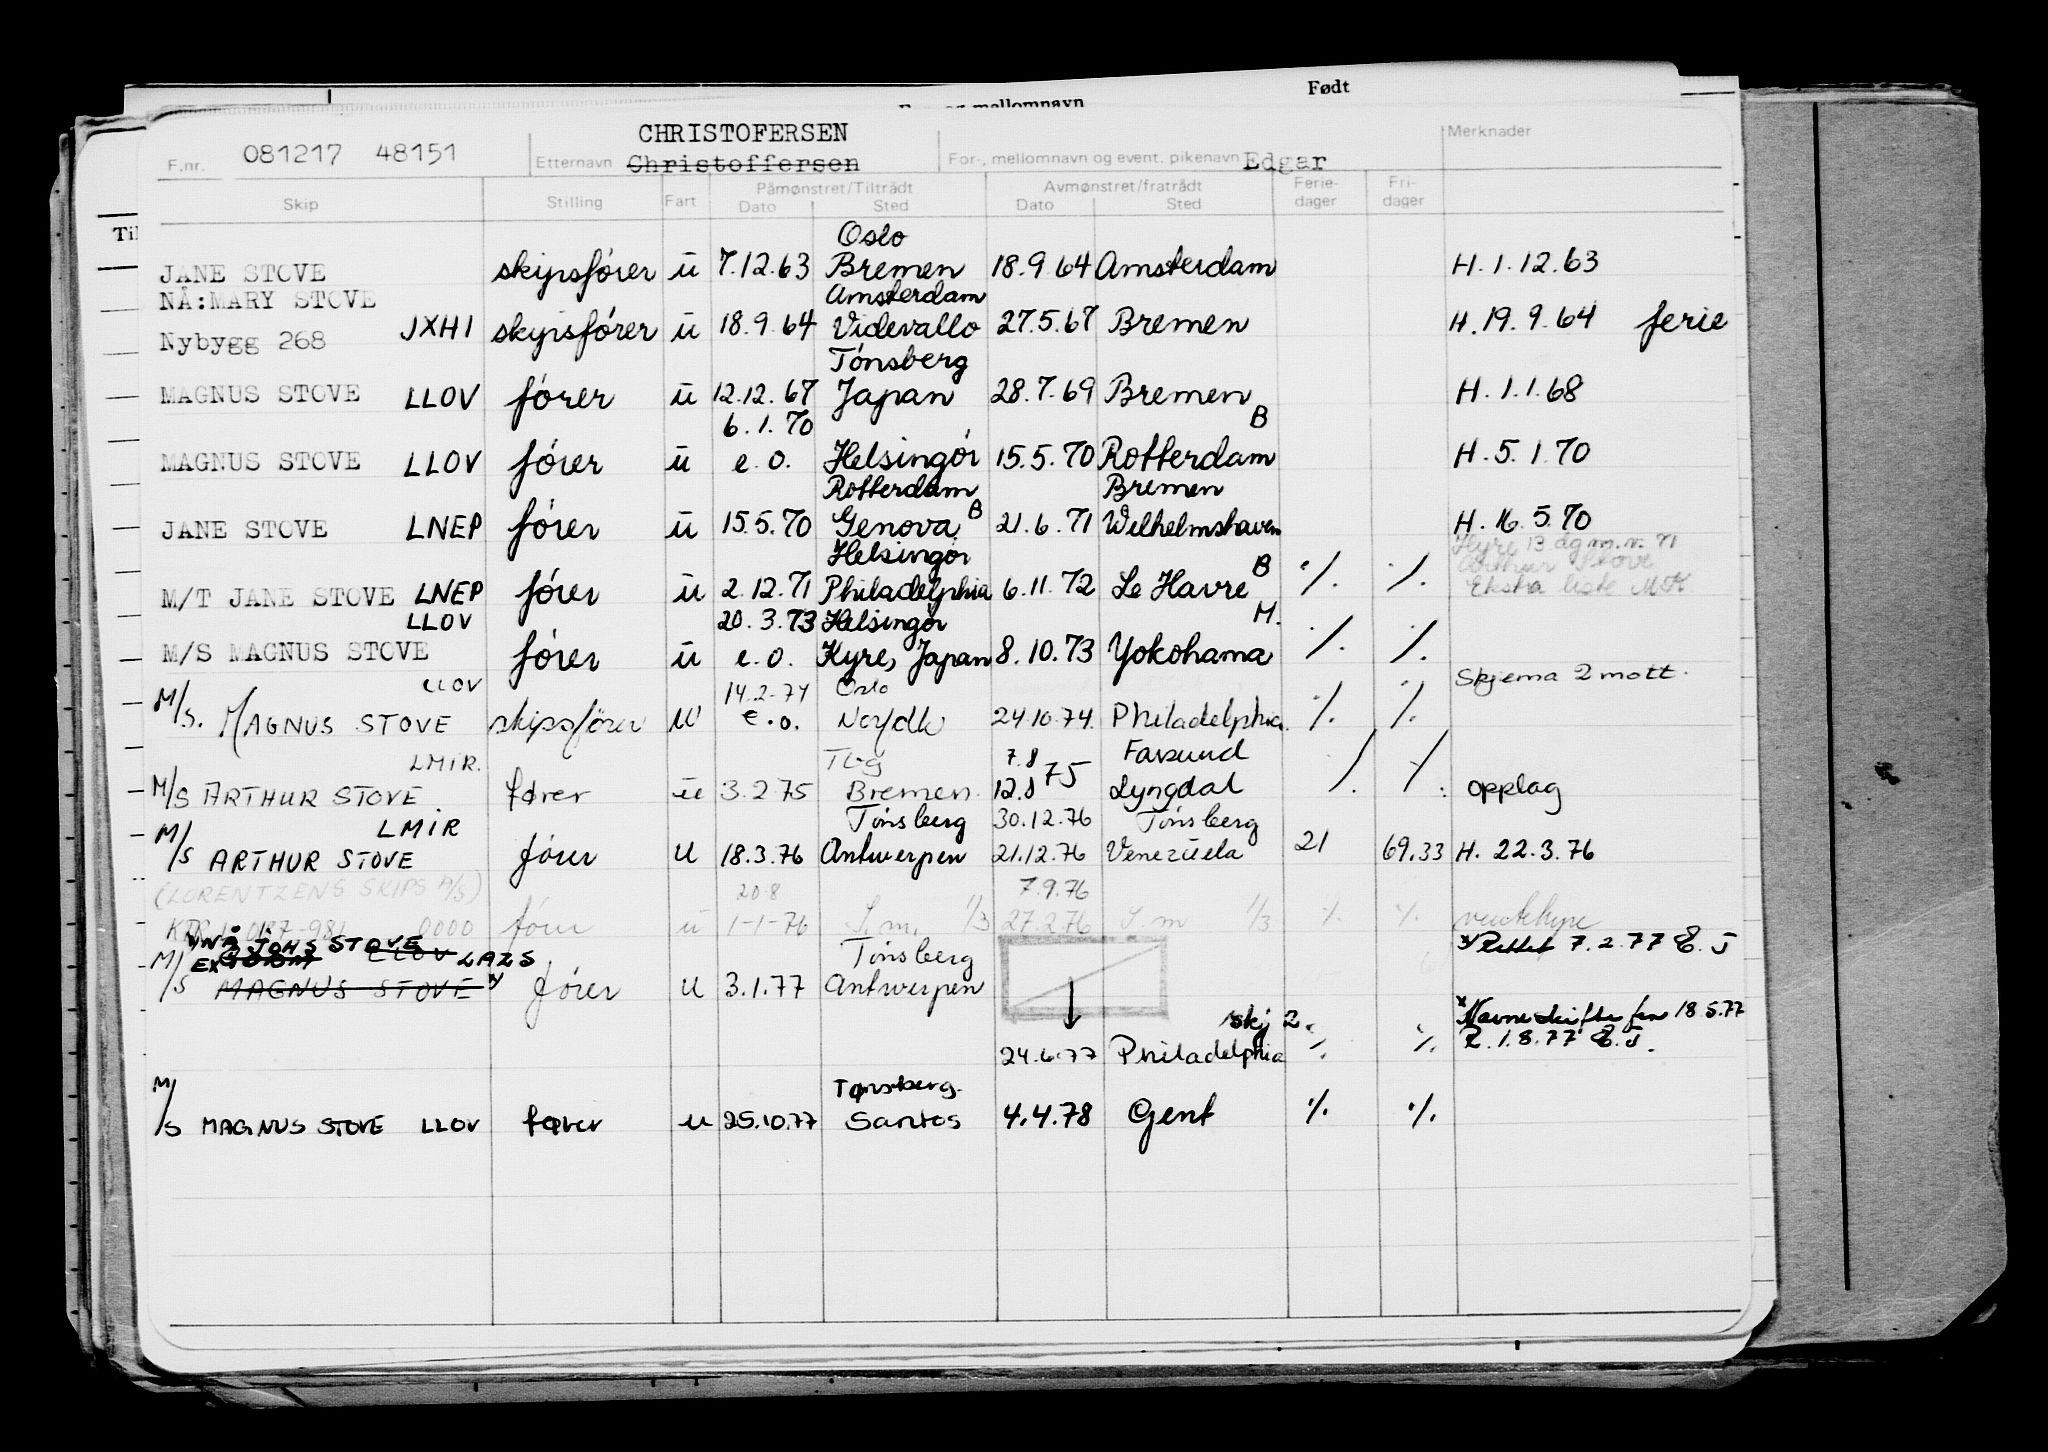 Født
mellomnavn
F.nr. 081217 48151 Etternavn CHRISTOFERSEN Christoffersen For-, mellomnavn og event. pikenavn Edgar Merknader
Skip Stilling Fart Påmønstret/Tiltrådt Dato Sted Avmønstret/fratrådt Dato Sted Ferie-dager Fri-dager
Til
Oslo
JANE STOVE skipsfører u 7.12.63 Bremen 18.9.64 Amsterdam H.1.12.63
NÅ:MARY STOVE Amsterdam
Nybygg 268 JXHI skipsfører u 18.9.64 Videvallo 27.5.67 Bremen H.19.9.64 ferie
Tönsberg
MAGNUS STOVE LLOV fører u 12.12.67 Japan 28.7.69 Bremen H.1.1.68
6.1.70 B
MAGNUS STOVE LLOV fører u e.o. Helsingör 15.5.70 Rotterdam H.5.1.70
Rotterdam Bremen
JANE STOVE LNEP fører u 15.5.70 Genova B 21.6.71 Wilhelmshaven H.16.5.70
Helsingör Hyre 13 dg m.v. 71
Arthur Stove
M/T JANE STOVE LNEP fører u 2.12.71 Philadelphia 6.11.72 Le Havre B ·/. ·/. Ekstra liste
LLOV 20.3.73 Helsingör M.
M/S MAGNUS STOVE fører u e.o. Kyre, Japan 8.10.73 Yokohama ·/. ·/.
LLOV 14.2.74 Oslo Skjema 2 mott.
M/S. MAGNUS STOVE skipsfører u e.o. Norfolk 24.10.74 Philadelphia ·/. ·/.
LMIR. Tbg 7.8 Farsund
M/S ARTHUR STOVE fører u 3.2.75 Bremen 12.8 75 Lyngdal ·/. ·/. opplag
LMIR Tönsberg 30.12.76 Tönsberg
M/S ARTHUR STOVE fører u 18.3.76 Antwerpen 21.12.76 Venezuela 21 69.33 H. 22.3.76
(LORENTZENS SKIPS A/S) 20.8 7.9.76
0000 fører u 1-1-76 S.m. 1/3 27.2.76 S.m 1/3 ·/. ·/.
NÅ: JOHS STOVE LAZS Tönsberg Rettet 7.2.77 E.J
M/S EX LLOV MAGNUS STOVE fører u 3.1.77 Antwerpen
skj 2. Navneskifte fra 18.5.77
24.6.77 Philadelphia ·/. ·/. R. 1.8.77 E.J.
Tønsberg.
M/S MAGNUS STOVE LLOV fører u 25.10.77 Santos 4.4.78 Gent ·/. ·/.